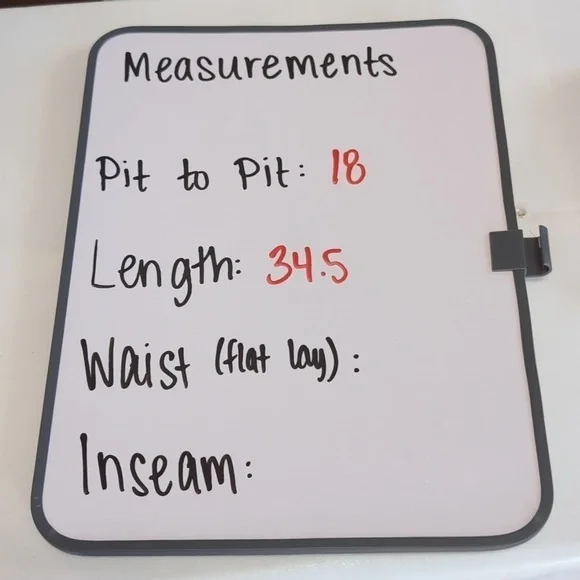 Measurements
Pit to Pit: 18
Length: 34.5
Waist (flat lay):
Inseam: